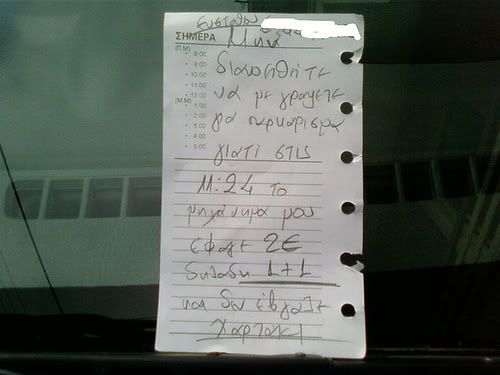 Ευσταθιο
ΣΗΜΕΡΑ Μην
(Π.Μ)
8:00
9:00
διανοηθήτε
10:00
11:00
να με γραψετε
12:00
(Μ.Μ)
1:00
2:00
για παρκαρισμα
3:00
4:00
γιατί στις
5:00
11:24 το
μηχάνημα μου
έφαγε 2€
δηλαδη 1+1
και δεν έβγαλε
χαρτακι